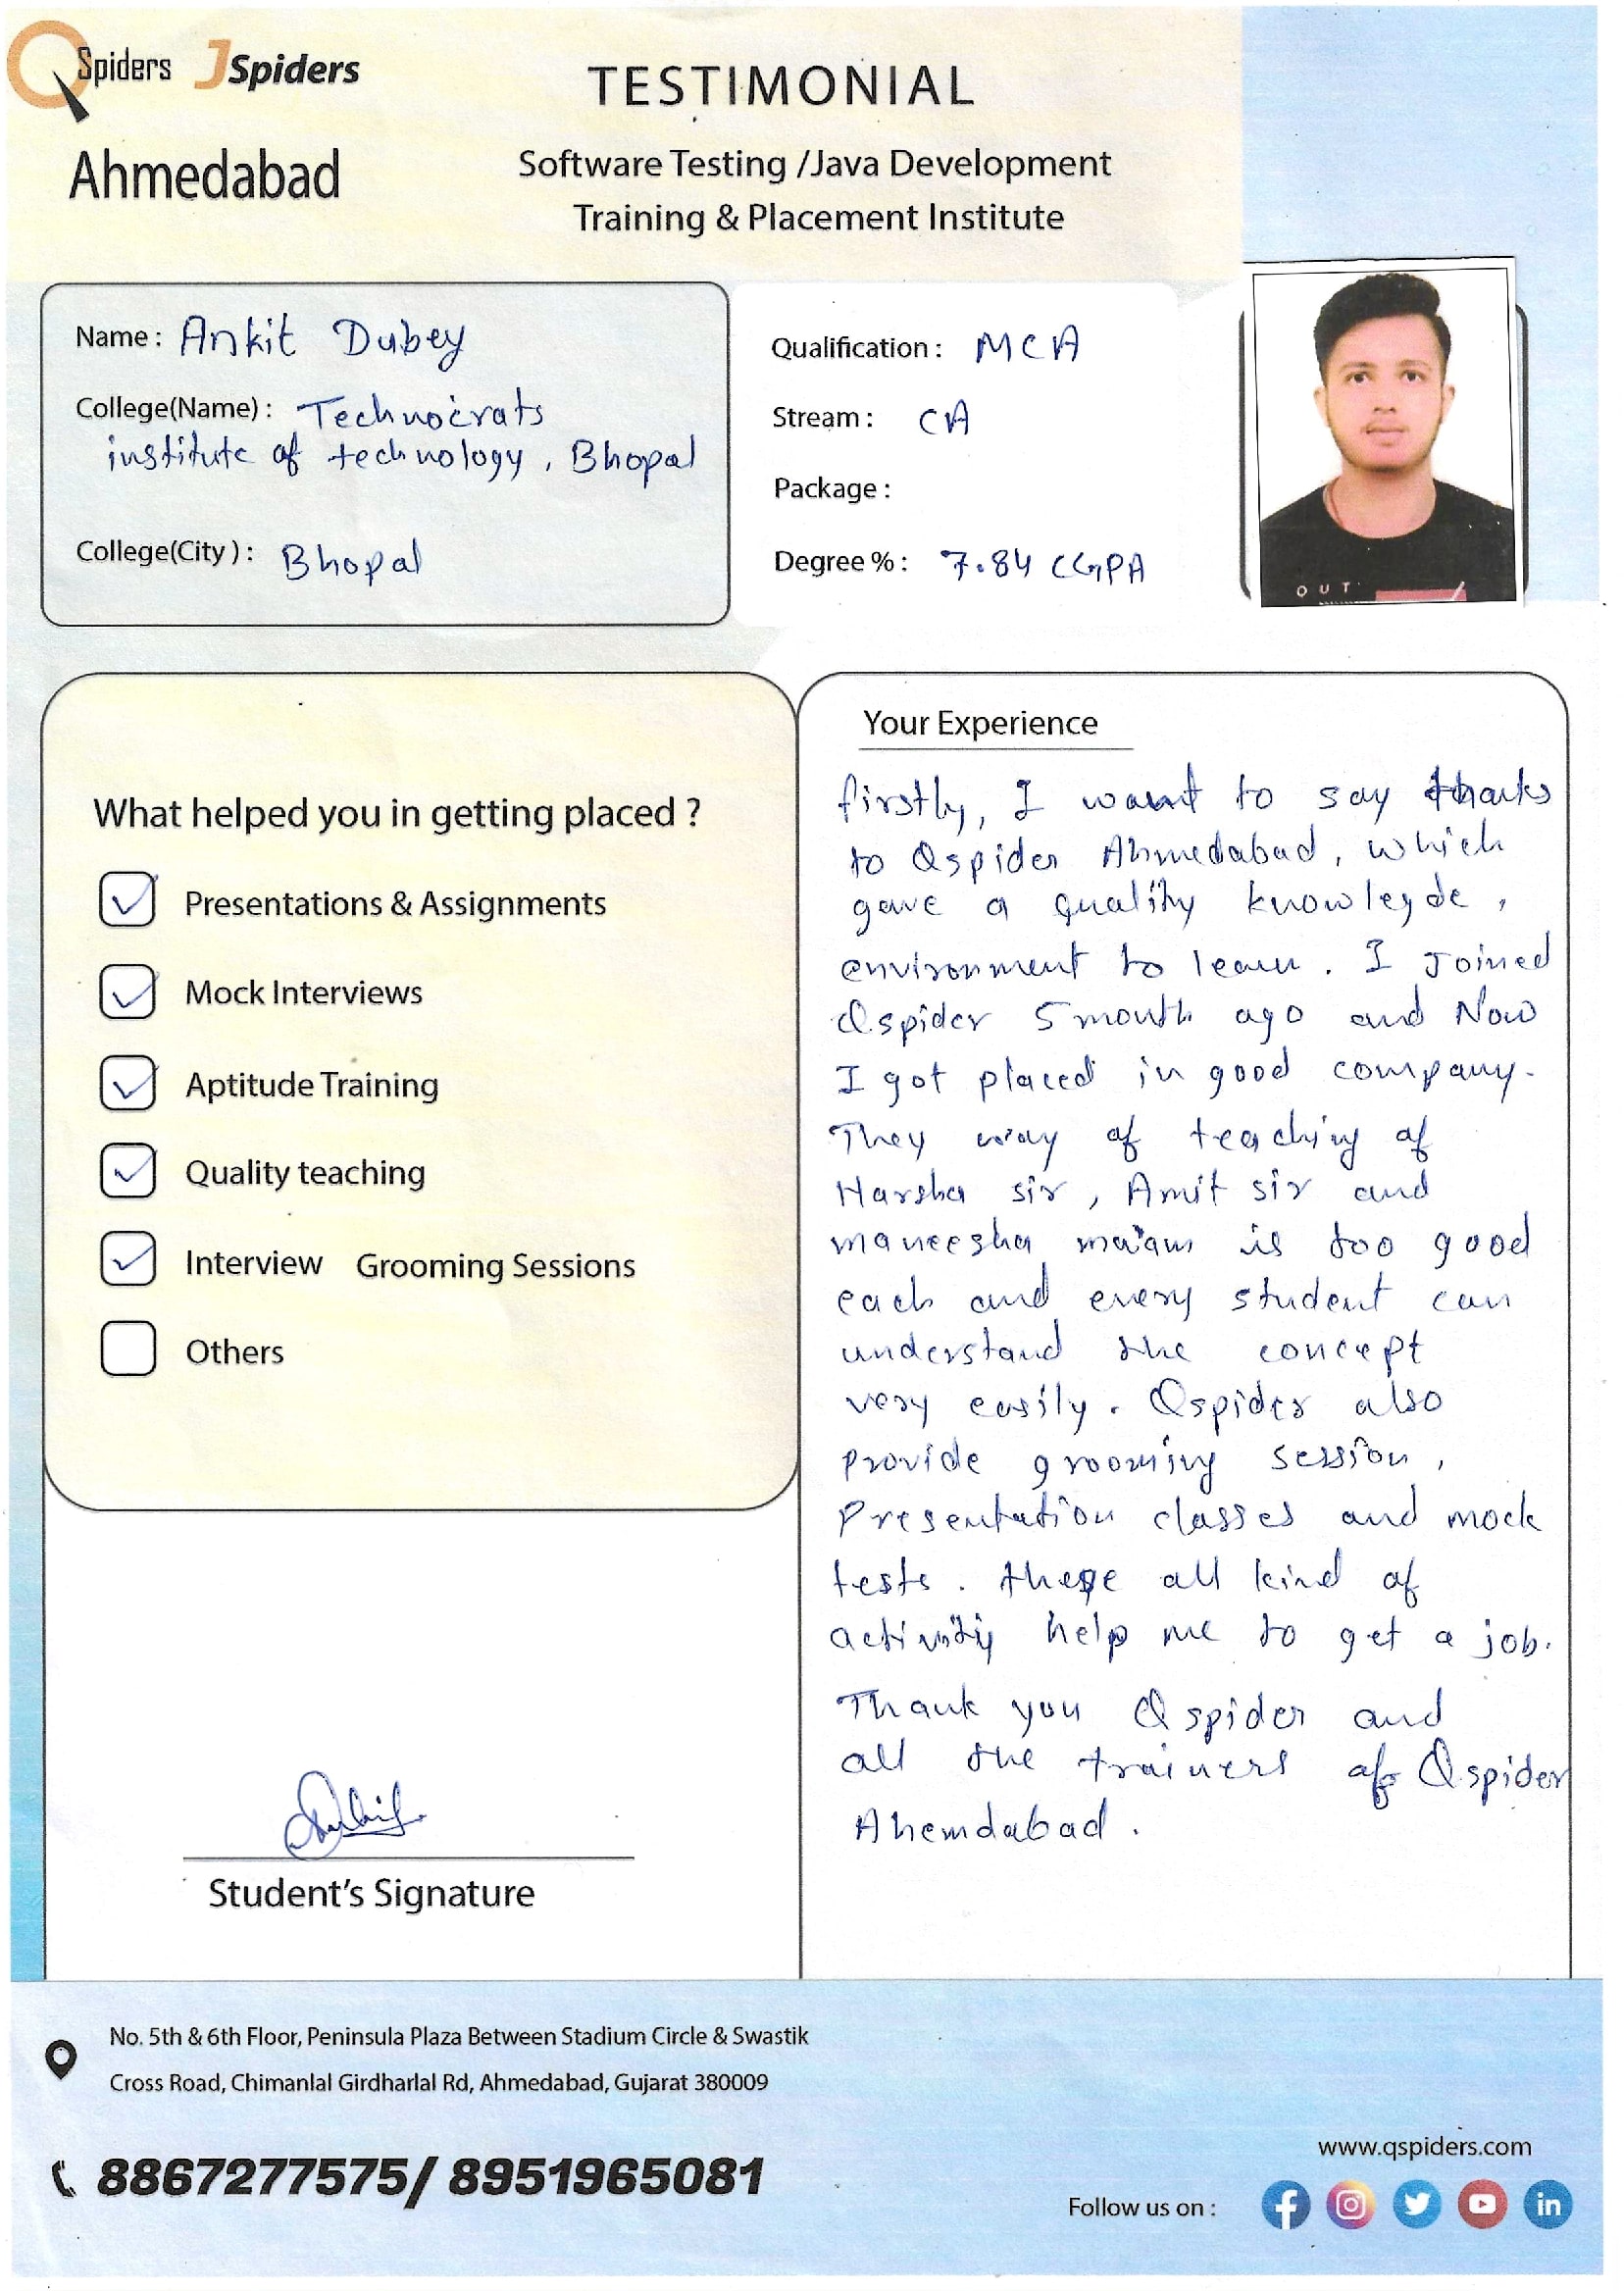 QSpiders JSpiders
Ahmedabad
TESTIMONIAL
Software Testing /Java Development
Training & Placement Institute
Name : Ankit Dubey
College(Name) : Technocrats
institute of technology, Bhopal
College(City) : Bhopal
Qualification : MCA
Stream : CA
Package :
Degree % : 7.84 CGPA
OUT
What helped you in getting placed ?
Presentations & Assignments
Mock Interviews
Aptitude Training
Quality teaching
Interview Grooming Sessions
Others
Student's Signature
Your Experience
firstly, I want to say thanks
to Qspider Ahmedabad, which
gave a quality knowlegde,
environment to learn. I Joined
Qspider 5 month ago and Now
I got placed in good company.
They way of teaching of
Harsha sir, Amit sir and
maneesha ma'am is too good
each and every student can
understand the concept
very easily. Qspider also
provide grooming session,
Presentation classes and mock
tests. these all kind of
activity help me to get a job.
Thank you Qspider and
all the trainers of Qspider
Ahemdabad.
No. 5th & 6th Floor, Peninsula Plaza Between Stadium Circle & Swastik
Cross Road, Chimanlal Girdharlal Rd, Ahmedabad, Gujarat 380009
8867277575/ 8951965081
www.qspiders.com
Follow us on :